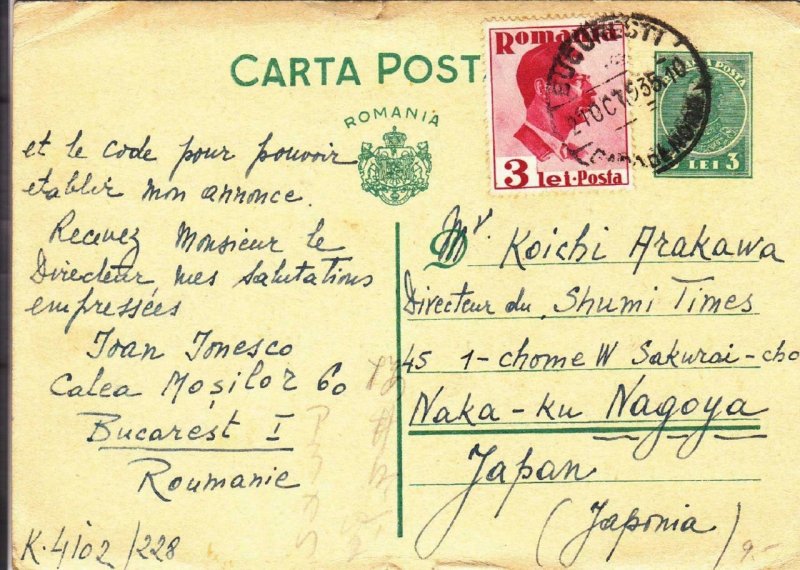 CARTA POST
ROMANIA
Romania
3 lei·Posta
BUCURESTI
21 OCT 935. 10
CARTA POSTALA
LEI 3
et le code pour pouvoir
etablir mon annonce.
Recevez Monsieur le
Directeur, mes salutations
empressées
Ioan Ionesco
Calea Moșilor 60
Bucarest I
Roumanie
K. 4102/228
D
Mr. Koichi Arakawa
Directeur du Shumi Times
45 1-chome W Sakurai-cho
Naka-ku Nagoya
Japan
(Japonia)
9.-